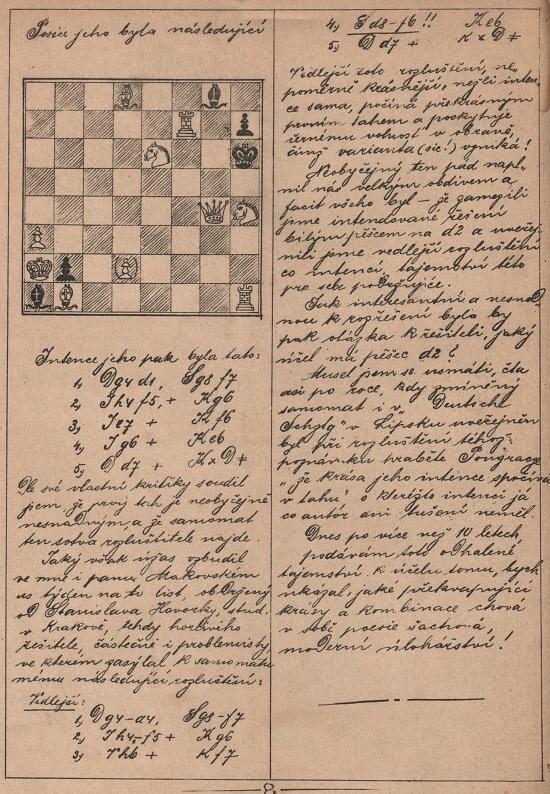 Posice jeho byla následující
Intence jeho pak byla tato:
1, Dg4 d1, Sg8 f7
2, Jh4 f5, + Kg6
3, Je7 + K f6
4, J g6 + Ke6
5, D d7 + K x D ‡
Dle své vlastní kritiky soudil
jsem, že prvý tah je neobyčejně
nesnadným, a že samomat
ten sotva rozluštitele najde.
Jaký však úžas vzbudil
ve mně i panu Makovském
us týden na to list, obdržený
od Stanislava Hovorky, stud.
v Krakově, tehdy horlivého
řešitele, částečně i problemisty,
ve kterém zasýlal k samomatu
mému následující rozluštění:
Vedlejší:
1, Dg4-a4, Sg8-f7
2, Jh4-f5 + Kg6
3, Vh6 + K f7
4, Sd8-f6 !! Ke6
5, D d7 + K x D ‡
Vedlejší toto rozluštění, ne
poměrně krásnější, nežli inten
ce sama, počíná překrásným
prvním tahem a poskytuje
černému volnost v obraně,
čímž varianta (sic!) vzniká!
Neobyčejný ten pád napl-
nil nás velkým obdivem a
facit všeho byl – že zamezili
jsme intendované řešení
bílým pěšcem na d2 a uveřej
nili jsme vedlejší rozluštění
co intenci, tajemství této
pro sebe podržujíce.
Jak interesantní a nesnad
nou k rozřešení byla by
pak otázka k řešiteli, jaký
účel má pěšec d2?
Musel jsem se usmáti, čta
asi po roce, kdy zmíněný
samomat i v „Deutsche
Schztg" v Lipsku uveřejněn
byl při rozluštění téhož
poznámku hraběte Pongracze
„že krása jeho intence spočívá
v tahu" o kterěžto intenci já
co autor ani tušení neměl.
Dnes po více než 10 letech,
podávám toto odhalené
tajemství k účelu tomu, bych
ukázal, jaké překvapující
krásy a kombinace chová
v sobě poesie šachová,
moderní úlohářství!
8